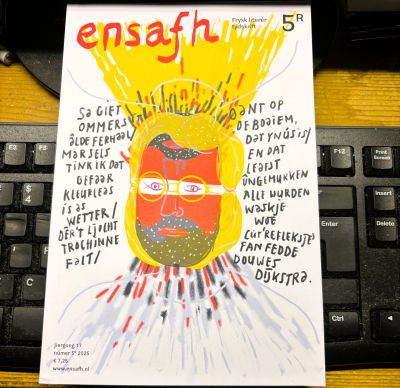 ensafh
Frysk literêr
tydskrift
5R
SA GIET
OMMERS
ÂLDE FERHAAL/
MAR SELS
TINK IK DAT
DEFAAR
KLEURLEAS
IS AS
WETTER/
DÊR'T LJOCHT
TROCHINNE
FALT/
OANT OP
DE BOAIEM,
DAT YN ÚS IS/
EN DAT
LEAFST
ÛNGEMUKKEN
ALLE WURDEN
WASKJE
WOE
(ÚT 'REFLEKSJE)
FAN FEDDE
DOUWES
DIJKSTRA.
jiergong 17
nûmer 5R 2025
€ 7,25
www.ensafh.nl
F12
Print
Screen
Insert
Delete
Enter
Ctrl
$
4